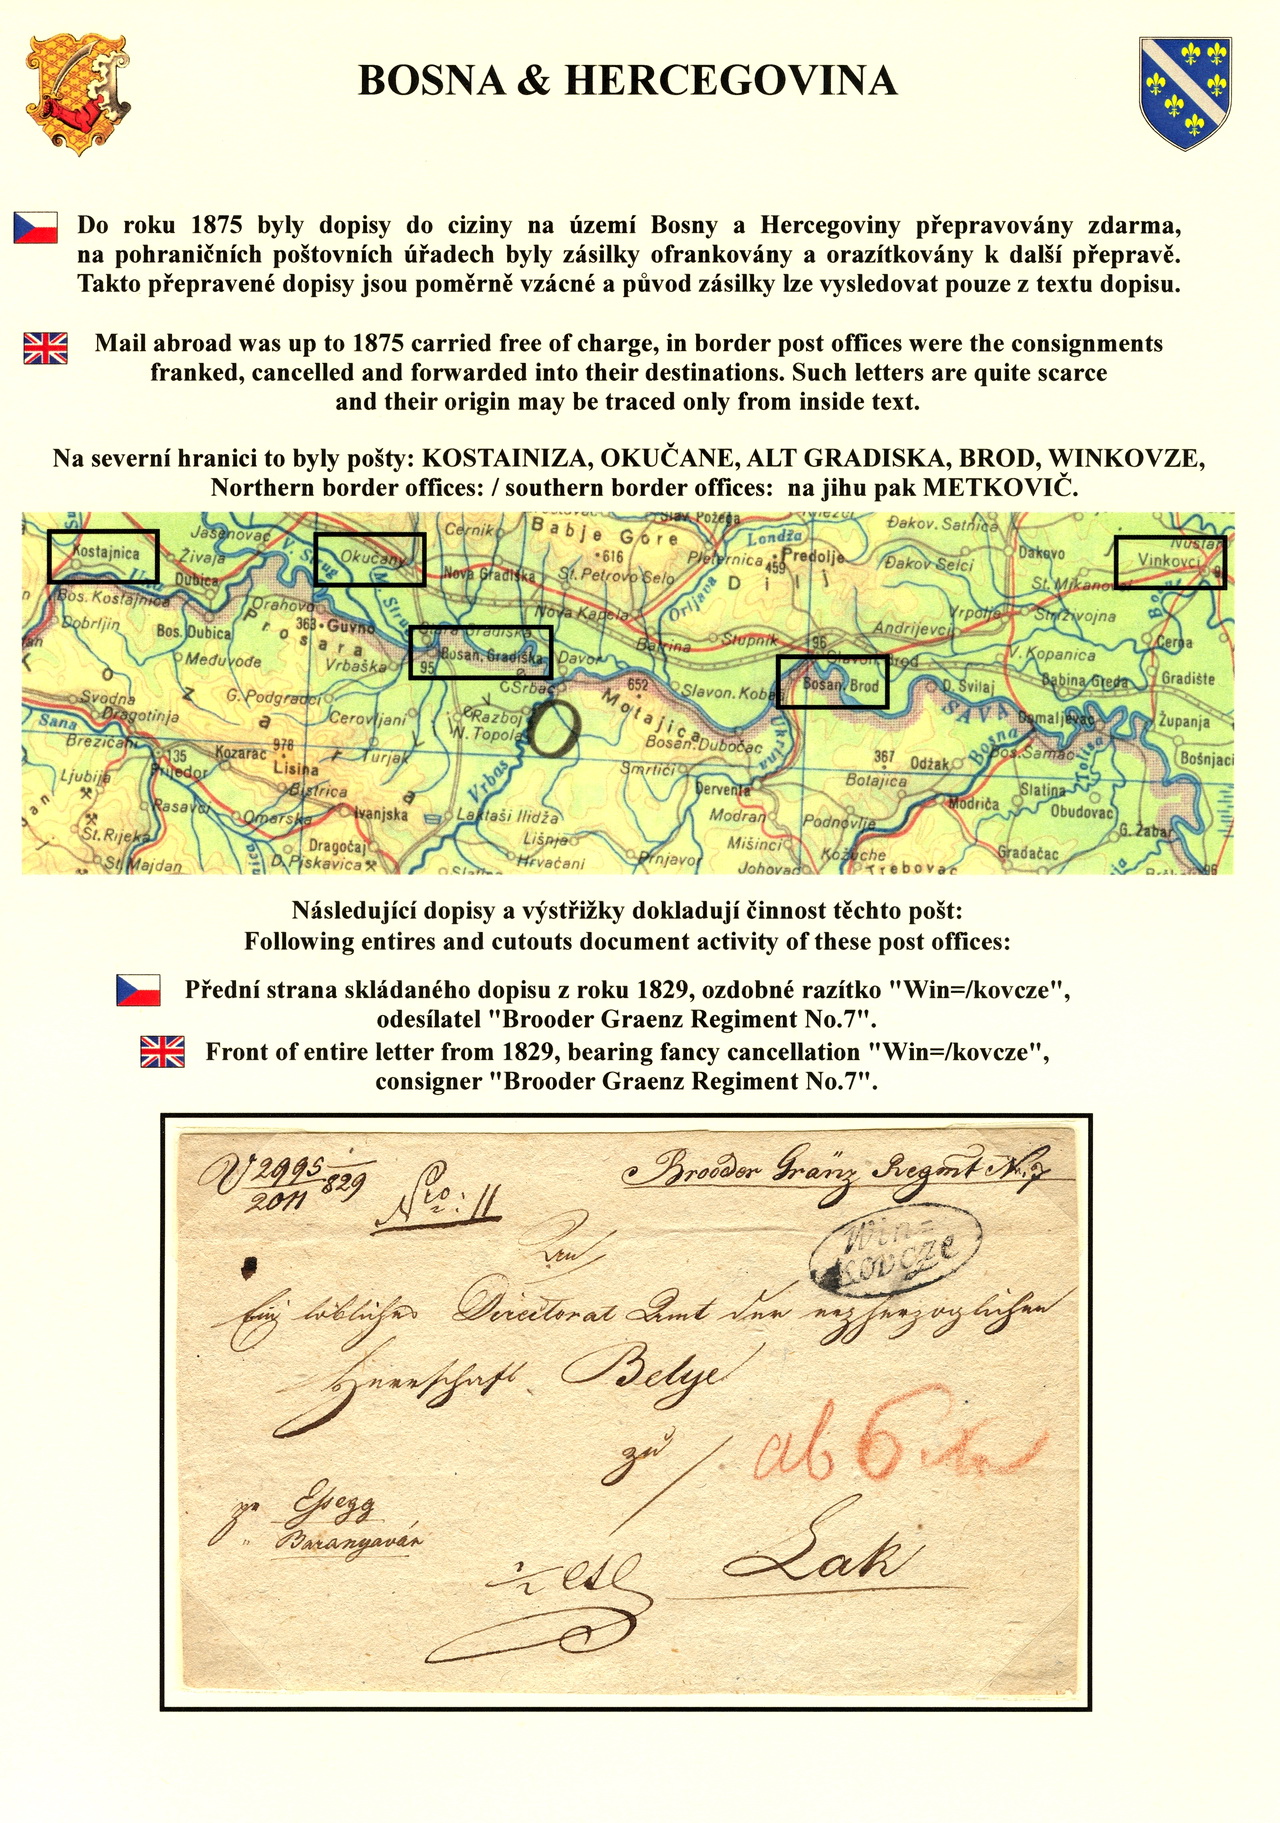 BOSNA & HERCEGOVINA
Do roku 1875 byly dopisy do ciziny na území Bosny a Hercegoviny přepravovány zdarma,
na pohraničních poštovních úřadech byly zásilky ofrankovány a orazítkovány k další přepravě.
Takto přepravené dopisy jsou poměrně vzácné a původ zásilky lze vysledovat pouze z textu dopisu.
Mail abroad was up to 1875 carried free of charge, in border post offices were the consignments
franked, cancelled and forwarded into their destinations. Such letters are quite scarce
and their origin may be traced only from inside text.
Na severní hranici to byly pošty: KOSTAINIZA, OKUČANE, ALT GRADISKA, BROD, WINKOVZE,
Northern border offices: / southern border offices: na jihu pak METKOVIČ.
Kostajnica
Jasenovac
Živaja
Dubica
V. Strug
Okučany
Cernik
Babje Gore
616
Slav. Požega
Londža
Pleternica
459
Predolje
Đakov. Satnica
Đakov Selci
Dakovo
St. Mikanovci
Vinkovci
Nuštar
Una
Bos. Kostajnica
Dobrljin
Bos. Dubica
Orahovo
363
Guvno
Prosara
M. Strug
Nova Gradiška
St. Petrovo Selo
Nova Kapela
Orljava
Dilj
Stara Gradiška
Bosan. Gradiška
95
Davor
Batrina
Stupnik
96
Slavon. Brod
Bosan. Brod
Andrijevci
Vrpolje
Strživojna
V. Kopanica
Cerna
Međuvođe
Vrbaška
Srbac
652
Motajica
Slavon. Kobaš
D. Svilaj
SAVA
Babina Greda
Gradište
Svodna
Dragotinja
G. Podgradci
Cerovljani
Razboj
N. Topola
O
Bosan. Dubočac
Ukrina
Domaljevac
Županja
Sana
Brezičani
135
Prijedor
Kozarac
978
Lisina
Turjak
Vrbas
Smrtići
Derventa
367
Odžak
Botajica
Bosna
Bos. Šamac
Tolisa
Bošnjaci
Ljubija
Rasavci
Bistrica
Omarska
Ivanjska
Laktaši Ilidža
Modran
Podnovlje
Modriča
Slatina
Obudovac
St. Rijeka
St. Majdan
Dragočaj
D. Piskavica
Lišnja
Hrvaćani
Prnjavor
Mišinci
Johovac
Kožuhe
Trebovac
Gradačac
G. Žabar
96
Následující dopisy a výstřižky dokladují činnost těchto pošt:
Following entires and cutouts document activity of these post offices:
Přední strana skládaného dopisu z roku 1829, ozdobné razítko "Win=/kovcze",
odesílatel "Brooder Graenz Regiment No.7".
Front of entire letter from 1829, bearing fancy cancellation "Win=/kovcze",
consigner "Brooder Graenz Regiment No.7".
V 2995 829
2011
Nro: 11
Brooder Gränz Regmt Nr. 7
Win=
kovcze
An
Ein löbliches Directorat Amt der erzherzoglichen
Herrschaft Belye
zu
ab 6
pr Essegg
" Baranyavár
Lak